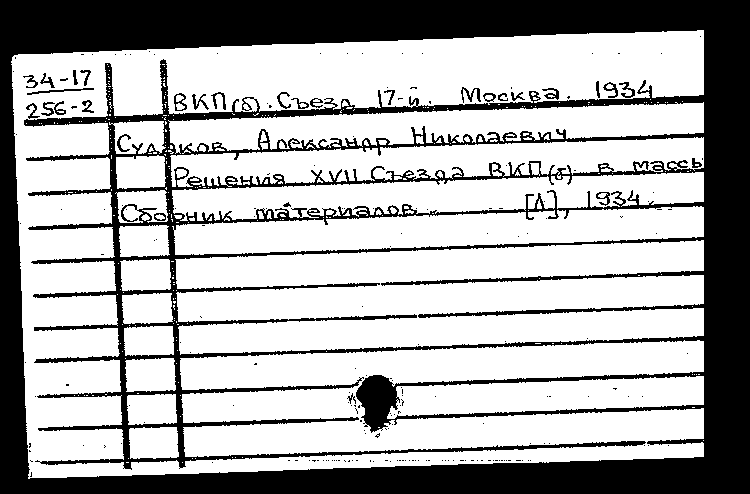 34-17
256-2
ВКП(б). Съезд 17-й. Москва. 1934
Судаков, Александр Николаевич
Решения XVII Съезда ВКП(б) в массы
Сборник материалов [Л], 1934.